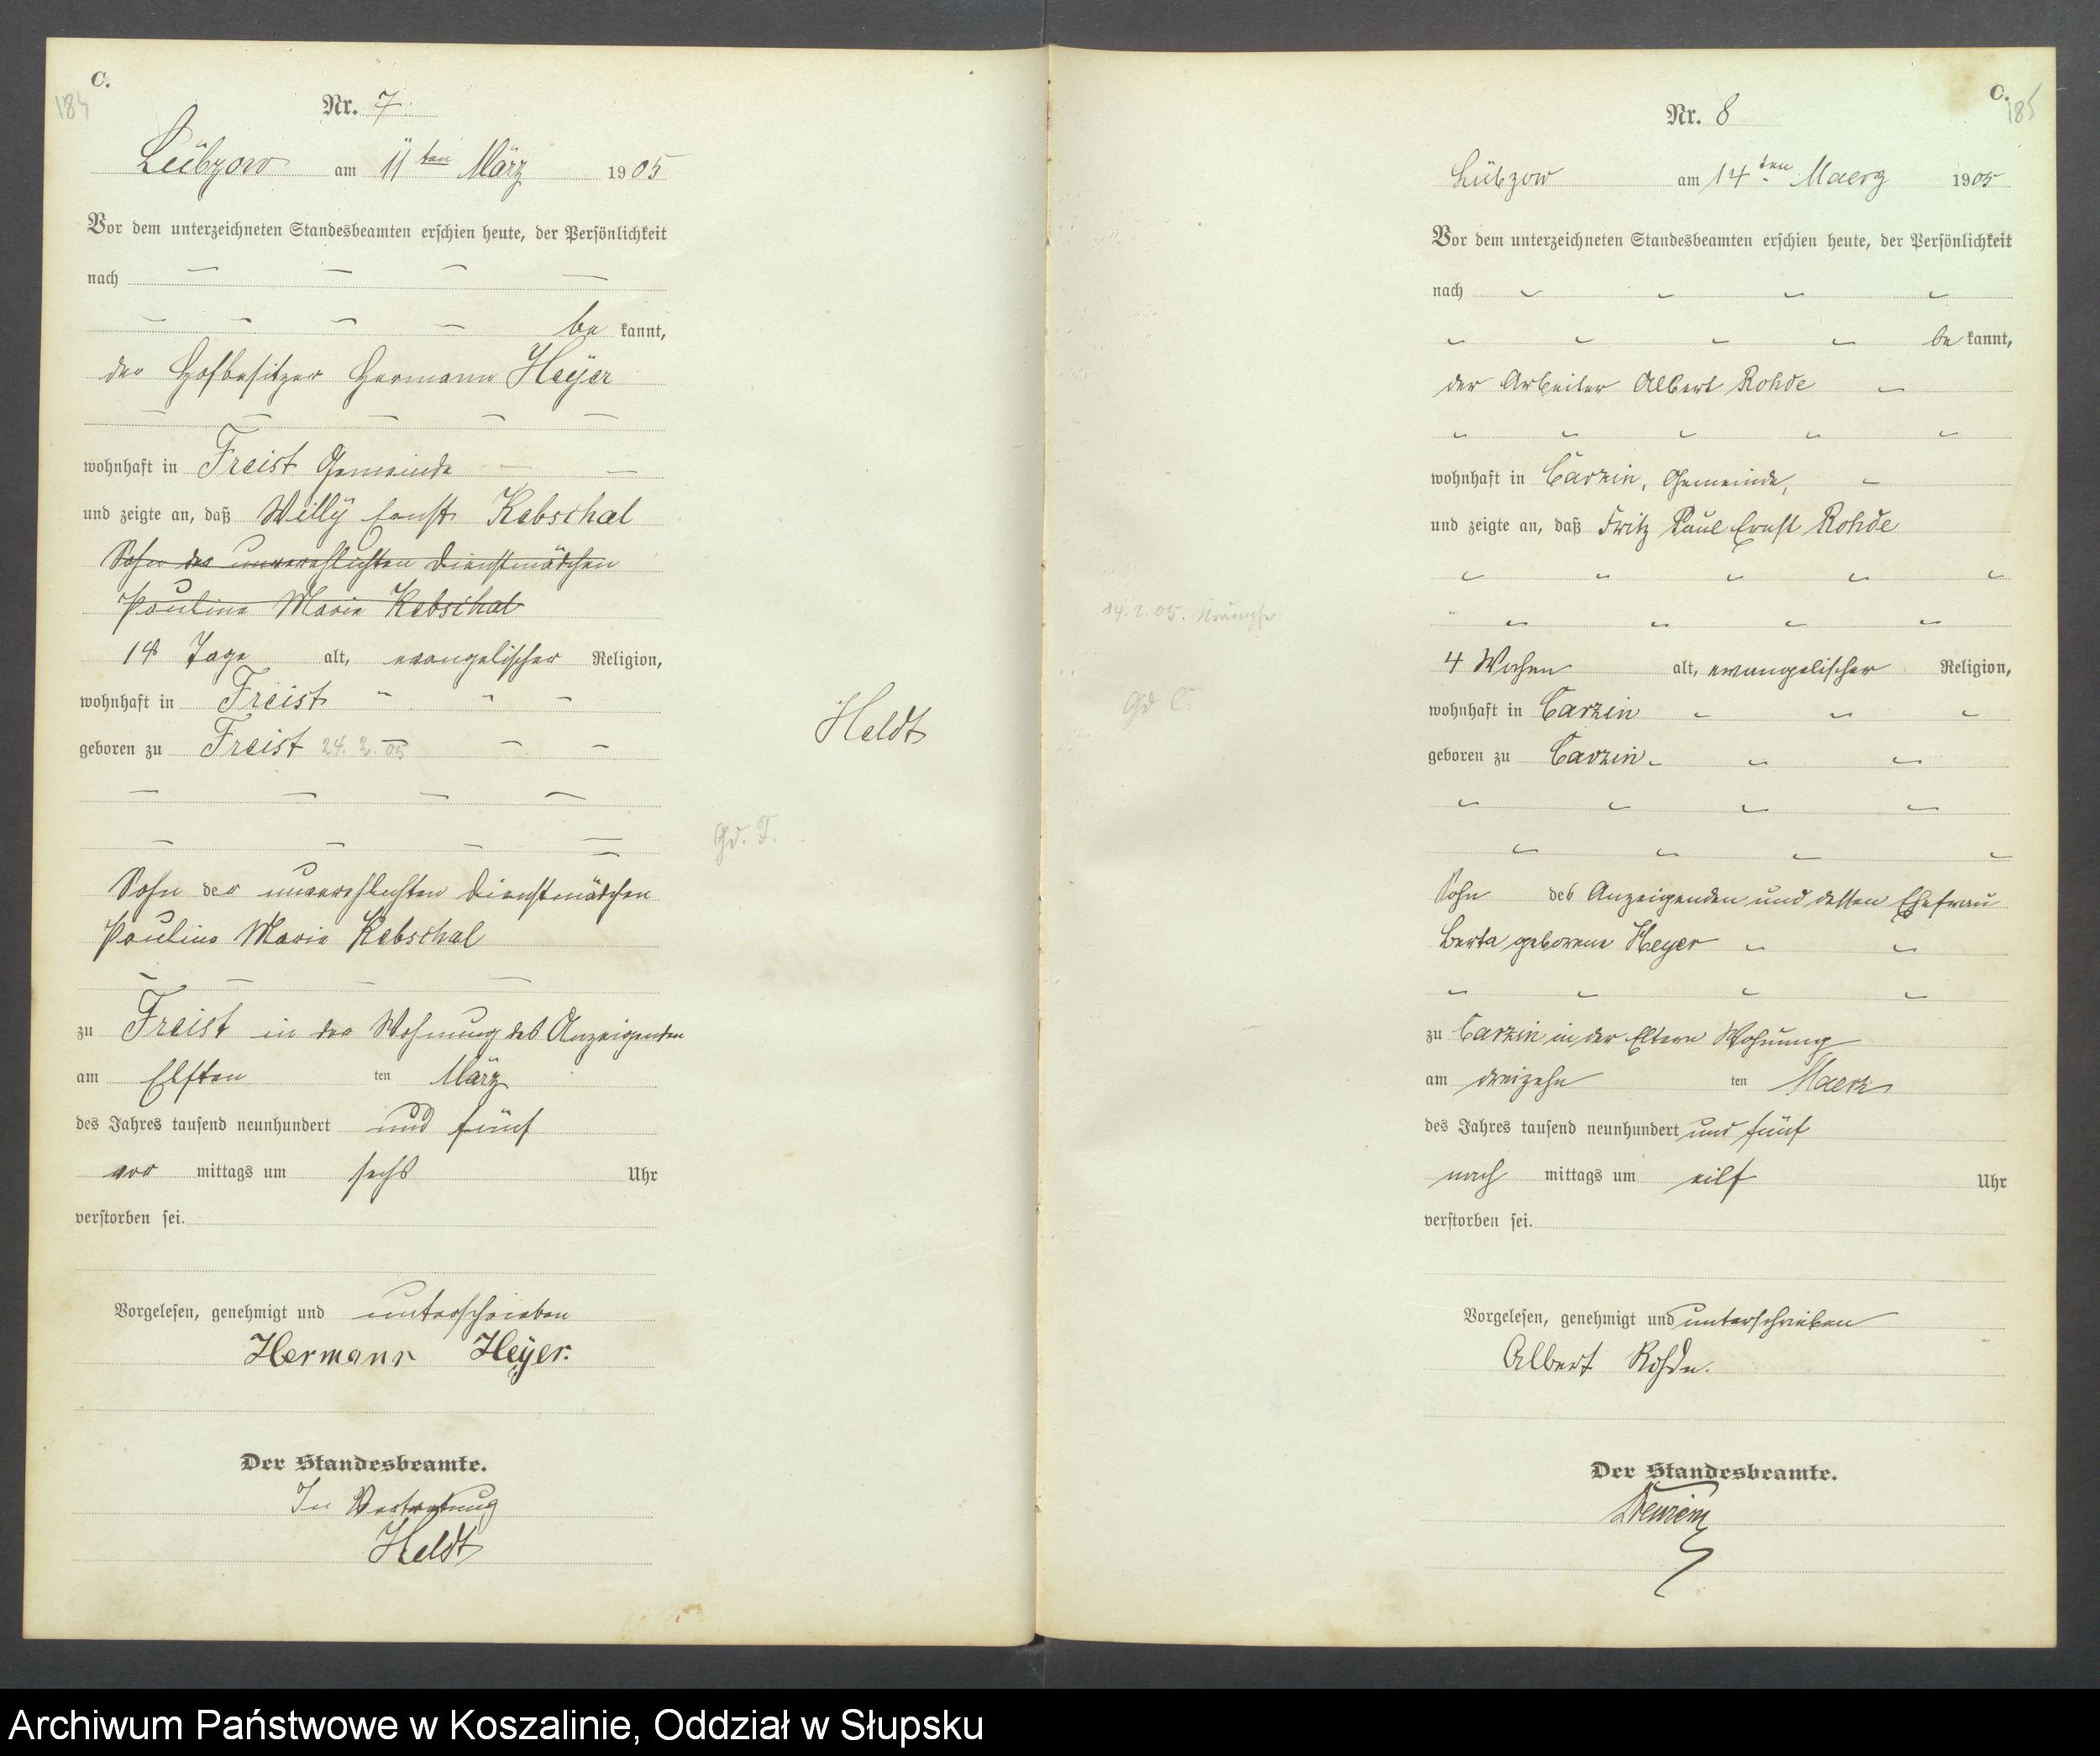 C.
184
Nr. 7.
Lübzow am 11ten März 1905
Vor dem unterzeichneten Standesbeamten erschien heute, der Persönlichkeit
nach — — — —
— — — — be kannt,
der Hofbesitzer Hermann Heÿer
— — — — —
wohnhaft in Freist Gemeinde — —
und zeigte an, daß Willÿ Ernst Kebschal
Sohn des unverehlichten Dienstmädchen
Pauline Marie Kebschal
14 Tage alt, evangelischer Religion,
wohnhaft in Freist
geboren zu Freist 24. 2. 05 — —
— — — —
— — — —
Sohn der unverehlichten Dienstmädchen
Pauline Marie Kebschal
— — —
zu Freist in der Wohnung des Anzeigenden
am Elften ten März
des Jahres tausend neunhundert und fünf
vor mittags um sechs Uhr
verstorben sei.
Vorgelesen, genehmigt und unterschrieben
Hermann Heÿer.
Der Standesbeamte.
In Vertretung
Heldt
Heldt
Gd. F.
C.
185
Nr. 8
Lübzow am 14ten Maerz 1905
Vor dem unterzeichneten Standesbeamten erschien heute, der Persönlichkeit
nach
be kannt,
der Arbeiter Albert Rohde
wohnhaft in Carzin, Gemeinde,
und zeigte an, daß Fritz Paul Ernst Rohde
4 Wochen alt, evangelischer Religion,
wohnhaft in Carzin
geboren zu Carzin
Sohn des Anzeigenden und dessen Ehefrau
Berta geborene Heyer
zu Carzin in der Eltern Wohnung
am dreizehn ten Maerz
des Jahres tausend neunhundert und fünf
nach mittags um eilf Uhr
verstorben sei.
Vorgelesen, genehmigt und unterschrieben
Albert Rohde.
Der Standesbeamte.
14. 2. 05. Krämpfe
Gd C.
Archiwum Państwowe w Koszalinie, Oddział w Słupsku